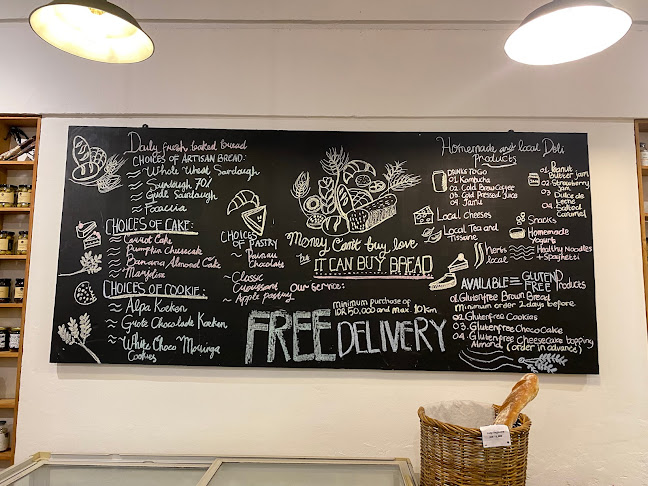 Daily fresh baked bread
CHOICES OF ARTISAN BREAD:
Whole Wheat Sourdough
Sourdough 70%
Grutt Sourdough
Focaccia
CHOICES OF CAKE:
Carrot Cake
Pumpkin Cheesecake
Banana Almond Cake
Marjolin
CHOICES OF COOKIE:
Alpa Koeken
Grote Chocolade Koeken
White Choco Moringa
Cookies
CHOICES
OF PASTRY
Painau
Chocolate
Classic
Croissant
Apple pastry
Money Can't buy love
but
IT CAN BUY BREAD
Our Service:
minimum purchase of
IDR 50,000 and max 10km
FREE DELIVERY
Homemade and local Deli
Products
DRINKS TO GO
01. Kombucha
02. Cold Brew Coffee
03. Cold Pressed Juice
04. Jamu
Local cheeses
Local Tea and
Tissane
Herbs
local
01. Peanut
Butter jam
02. Strawberry
jam
03. Dulce de
Leche
04. Salted
Caramel
Snacks
Homemade
Yogurt
Healthy Noodles
+ Spaghetti
AVAILABLE = GLUTEND FREE Products
01. Glutenfree Brown Bread
Minimum order 2 days before
02. Glutenfree Cookies
03. Glutenfree Choco Cake
04. Glutenfree Cheesecake topping
Almond (order in advance)